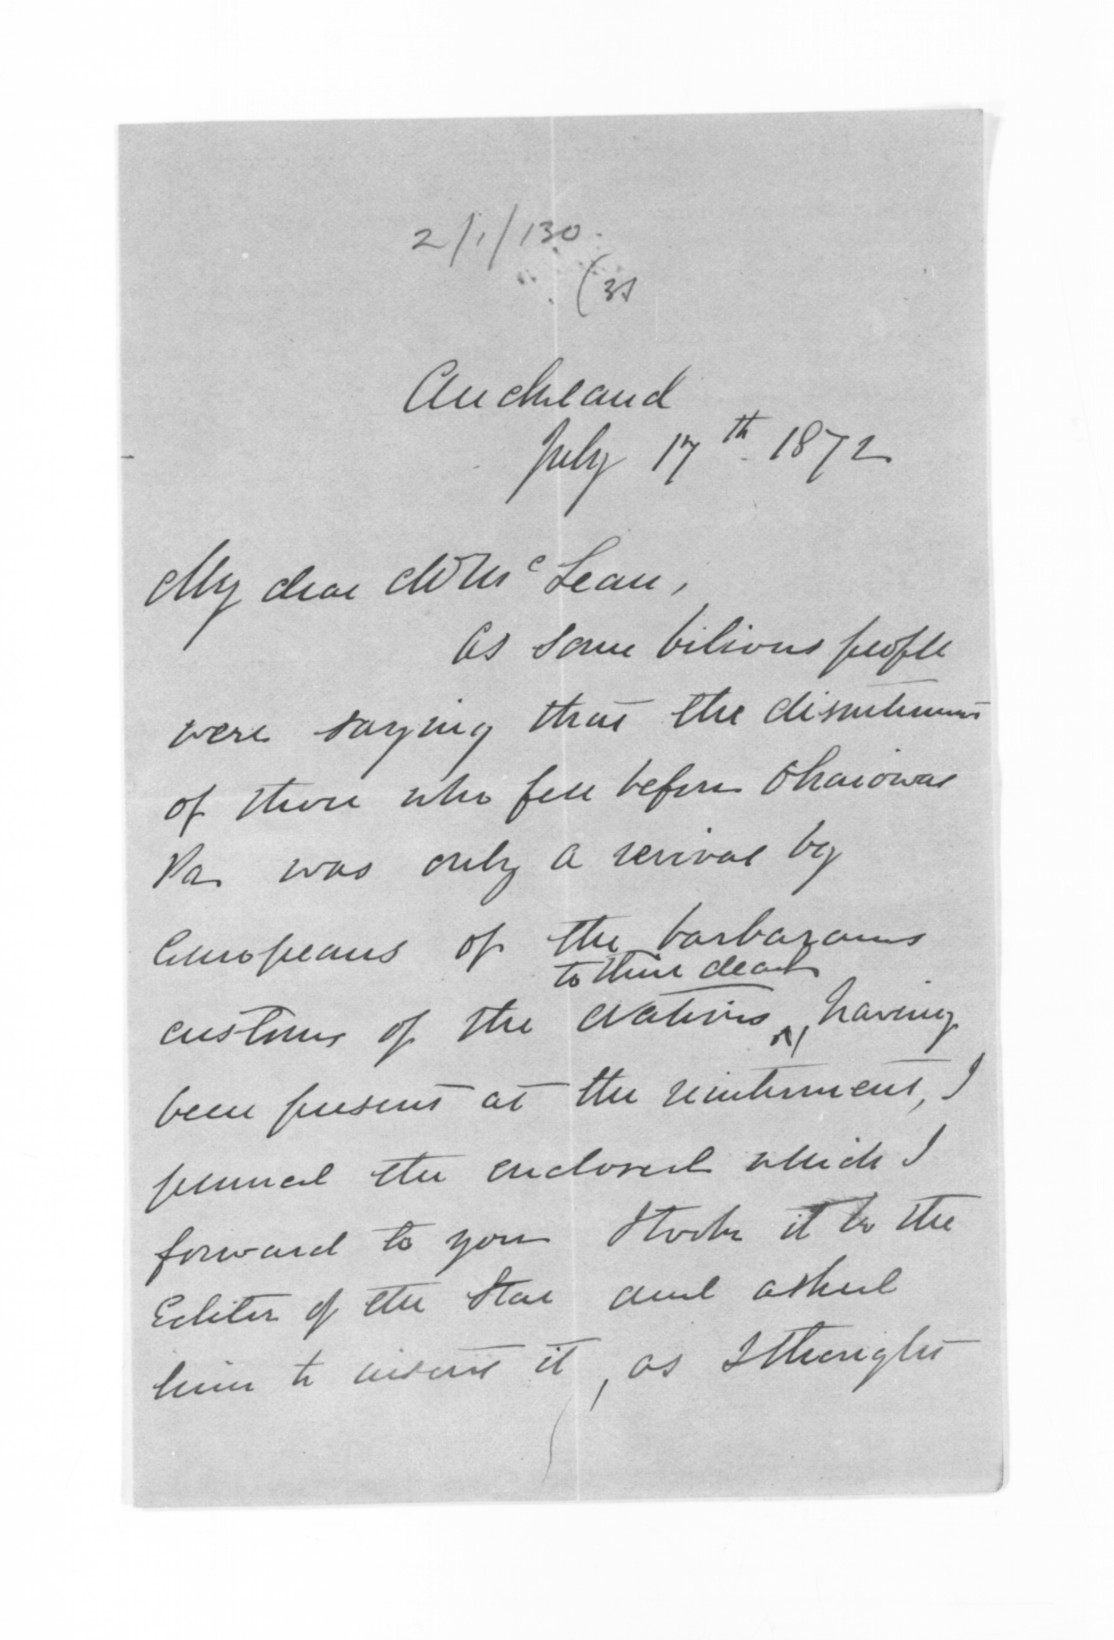 2/1/130.
(31
Auckland
July 17th 1872
My dear Mr McLean,
As some bilious people
were saying that the disinterment
of those who fell before Ohaiowae
Pa was only a revival by
Europeans of the barbarous
to their dead
customs of the Natives, having
been present at the reinterment, I
penned the enclosed which I
forward to you I took it to the
Editor of the Star and asked
him to insert it, as I thought